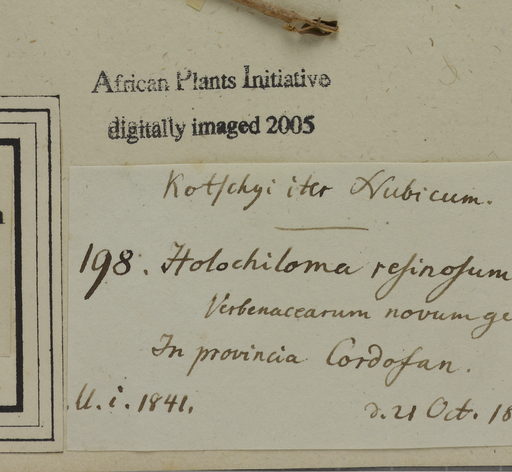 African Plants Initiative
digitally imaged 2005
Kotschyi iter Nubicum.
198. Holochiloma resinosum
Verbenacearum novum ge
In provincia Cordofan.
U. i. 1841.
d. 21 Oct. 18